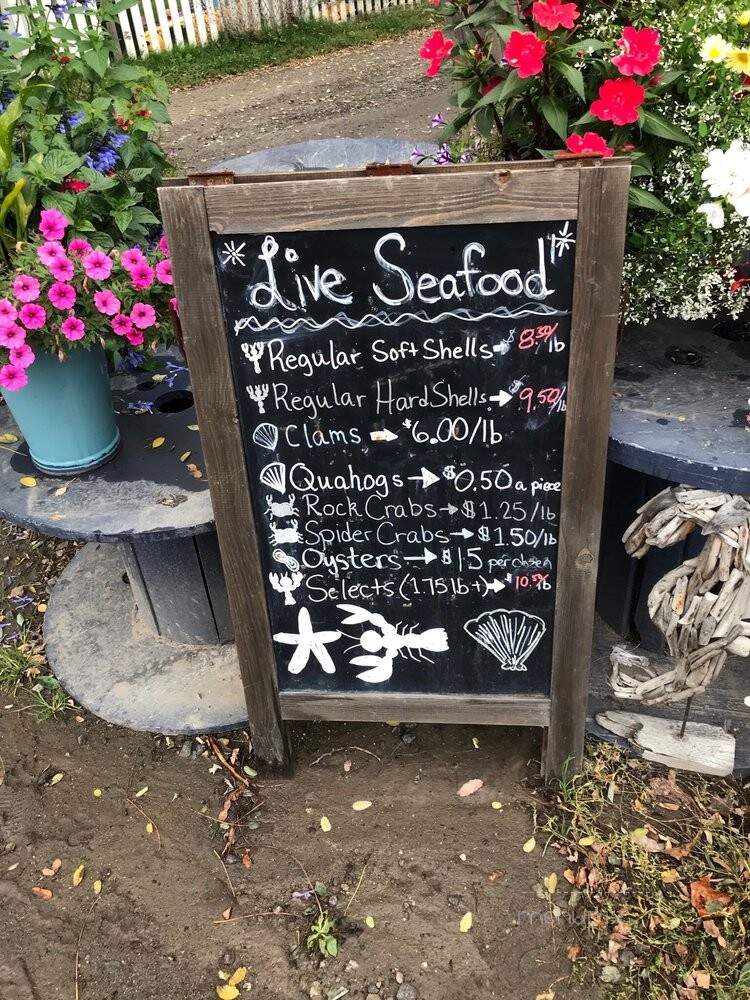 Live Seafood
Regular Soft Shells → $8.50/lb
Regular Hard Shells → $9.50/lb
Clams → $6.00/lb
Quahogs → $0.50 a piece
Rock Crabs → $1.25/lb
Spider Crabs → $1.50/lb
Oysters → $15 per dozen
Selects (1.75 lb+) → $10.50/lb